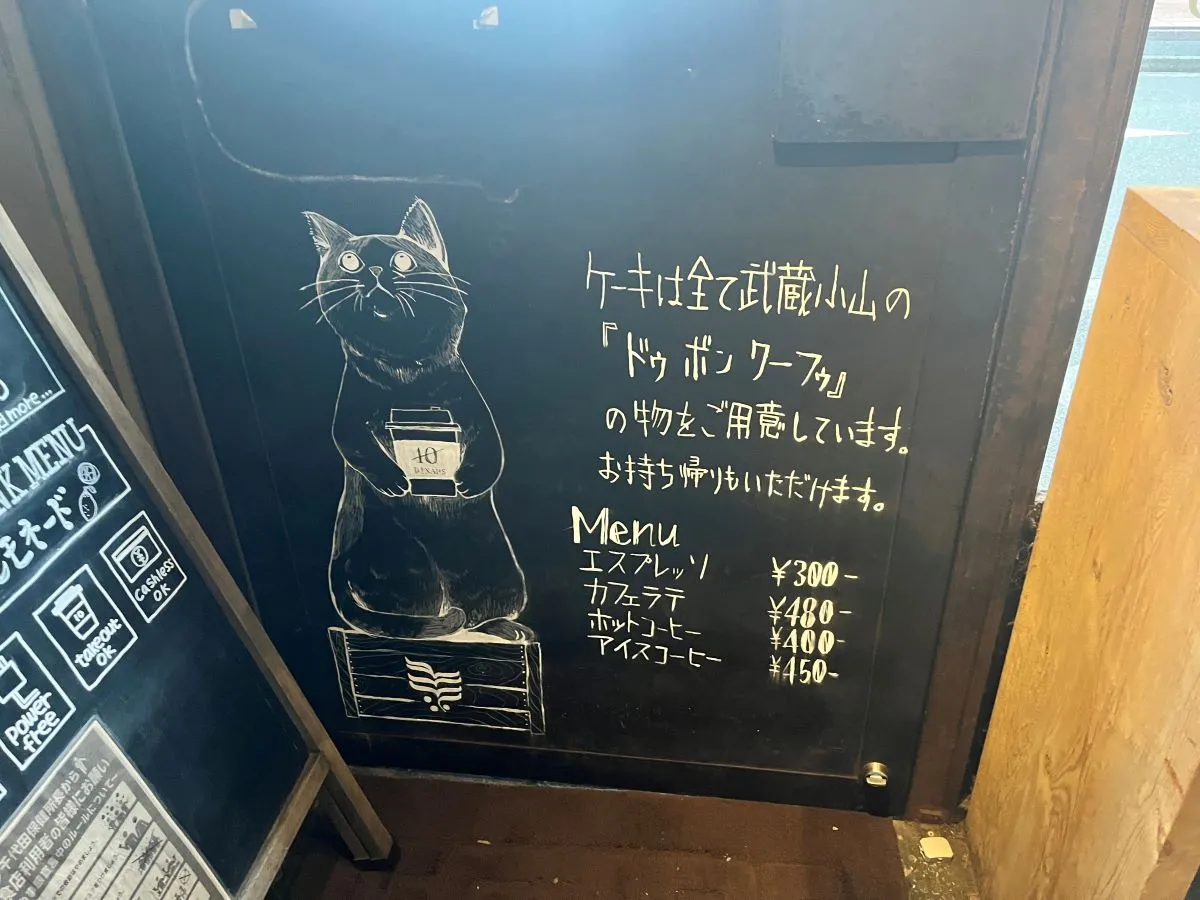 ケーキは全て武蔵小山の
『ドゥ ボン クーフゥ』
の物をご用意しています。
お持ち帰りもいただけます。
Menu
エスプレッソ ¥300-
カフェラテ ¥480-
ホットコーヒー ¥400-
アイスコーヒー ¥450-
10
more...
MENU
モネード
cashless
OK
takeout
OK
power
free
千代田保健所から
店利用者の皆様にお願い